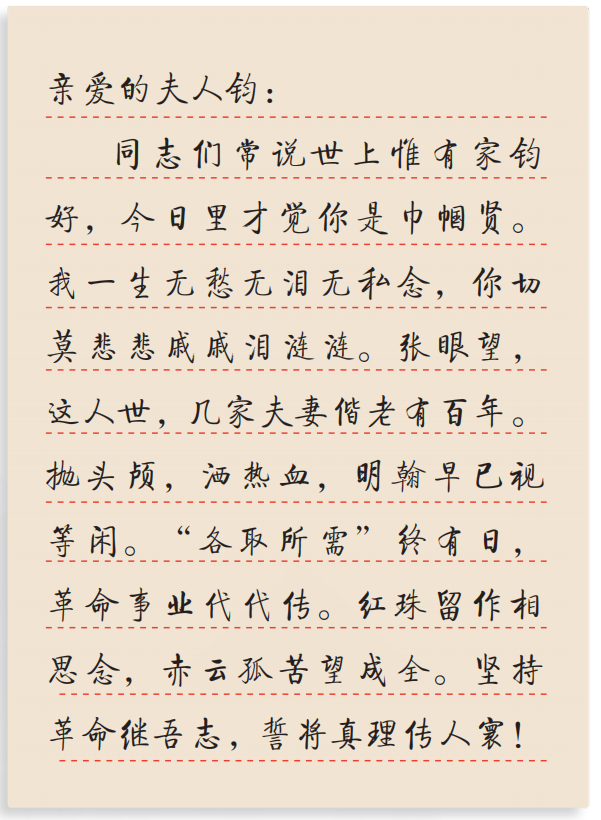 亲爱的夫人钧：
同志们常说世上惟有家钧
好，今日里才觉你是巾帼贤。
我一生无愁无泪无私念，你切
莫悲悲戚戚泪涟涟。张眼望，
这人世，几家夫妻偕老有百年。
抛头颅，洒热血，明翰早已视
等闲。“各取所需”终有日，
革命事业代代传。红珠留作相
思念，赤云孤苦望成全。坚持
革命继吾志，誓将真理传人寰！